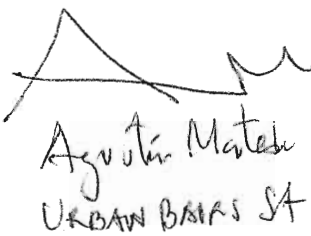 Agustín Mateu
URBAN BAIRS SA